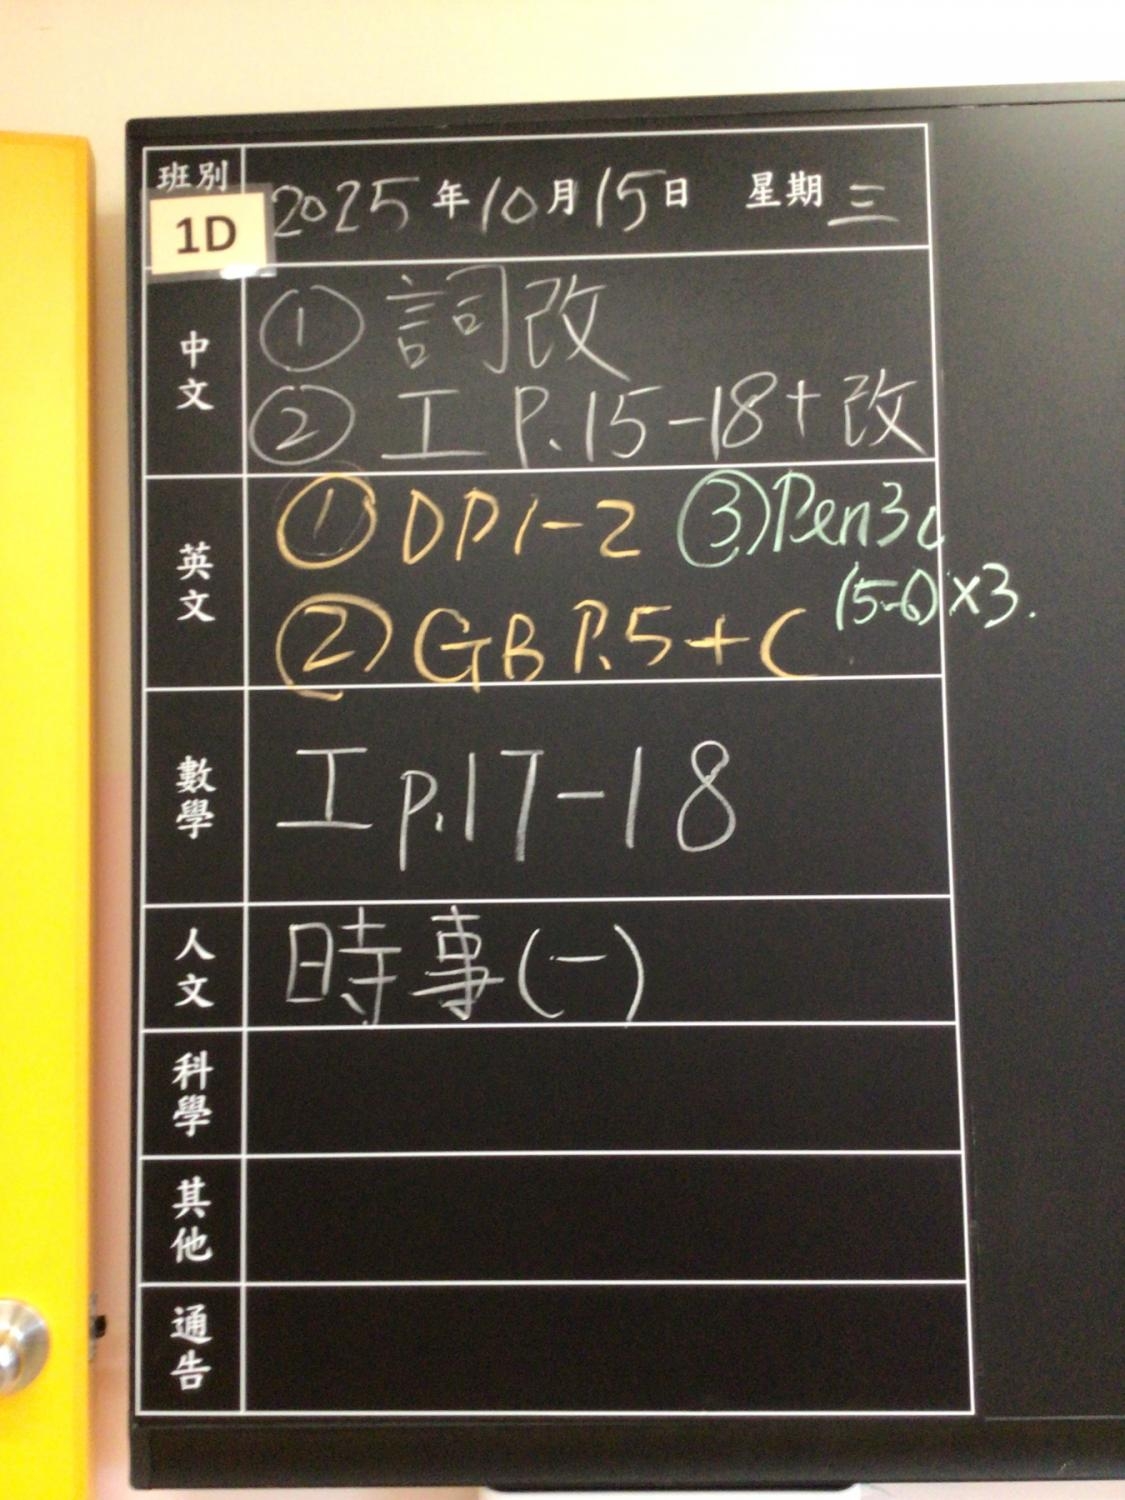 班別
1D
2025年10月15日 星期三
中文
① 詞改
② 工 P.15-18+改
英文
① DP1-2 ③ Pen3c
(5-6)×3.
② GB P.5+C
數學
工 p.17-18
人文
時事(一)
科學
其他
通告